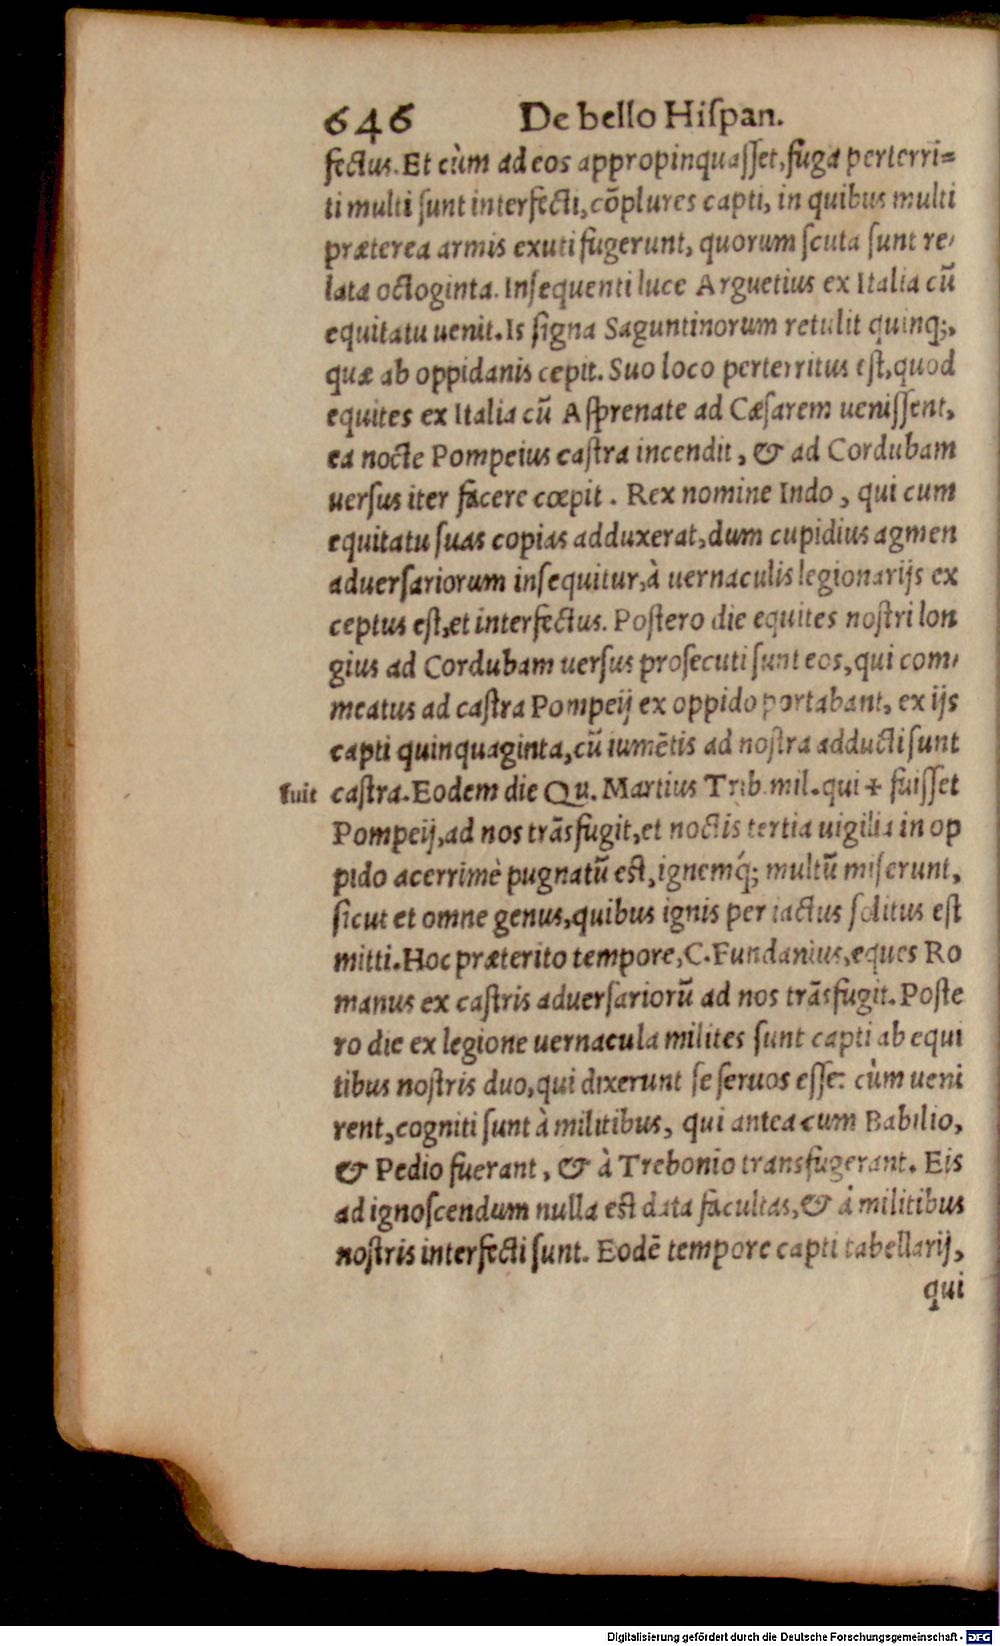 646 De bello Hiſpan.
fectus. Et cùm ad eos appropinquaſſet, fuga perterri=
ti multi ſunt interfecti, cõplures capti, in quibus multi
præterea armis exuti fugerunt, quorum ſcuta ſunt re-
lata octoginta. Inſequenti luce Arguetius ex Italia cũ
equitatu uenit. Is ſigna Saguntinorum retulit quinq;,
quæ ab oppidanis cepit. Suo loco perterritus eſt, quod
equites ex Italia cũ Aſprenate ad Cæſarem ueniſſent,
ea nocte Pompeius caſtra incendit, & ad Cordubam
uerſus iter facere cœpit. Rex nomine Indo, qui cum
equitatu ſuas copias adduxerat, dum cupidius agmen
aduerſariorum inſequitur, à uernaculis legionarijs ex
ceptus eſt, et interfectus. Poſtero die equites noſtri lon
gius ad Cordubam uerſus proſecuti ſunt eos, qui com-
meatus ad caſtra Pompeij ex oppido portabant, ex ijs
capti quinquaginta, cũ iumẽtis ad noſtra adducti ſunt
fuit caſtra. Eodem die Qu. Martius Trib. mil. qui + fuiſſet
Pompeij, ad nos trãsfugit, et noctis tertia uigilia in op
pido acerrimè pugnatũ eſt, ignemq́; multũ miſerunt,
ſicut et omne genus, quibus ignis per iactus ſolitus eſt
mitti. Hoc præterito tempore, C. Fundanius, eques Ro
manus ex caſtris aduerſariorũ ad nos trãsfugit. Poſte
ro die ex legione uernacula milites ſunt capti ab equi
tibus noſtris duo, qui dixerunt ſe ſeruos eſſe: cùm ueni
rent, cogniti ſunt à militibus, qui antea cum Babilio,
& Pedio fuerant, & à Trebonio transfugerant. Eis
ad ignoſcendum nulla eſt data facultas, & à militibus
noſtris interfecti ſunt. Eodẽ tempore capti tabellarij,
qui
Digitalisierung gefördert durch die Deutsche Forschungsgemeinschaft - DFG